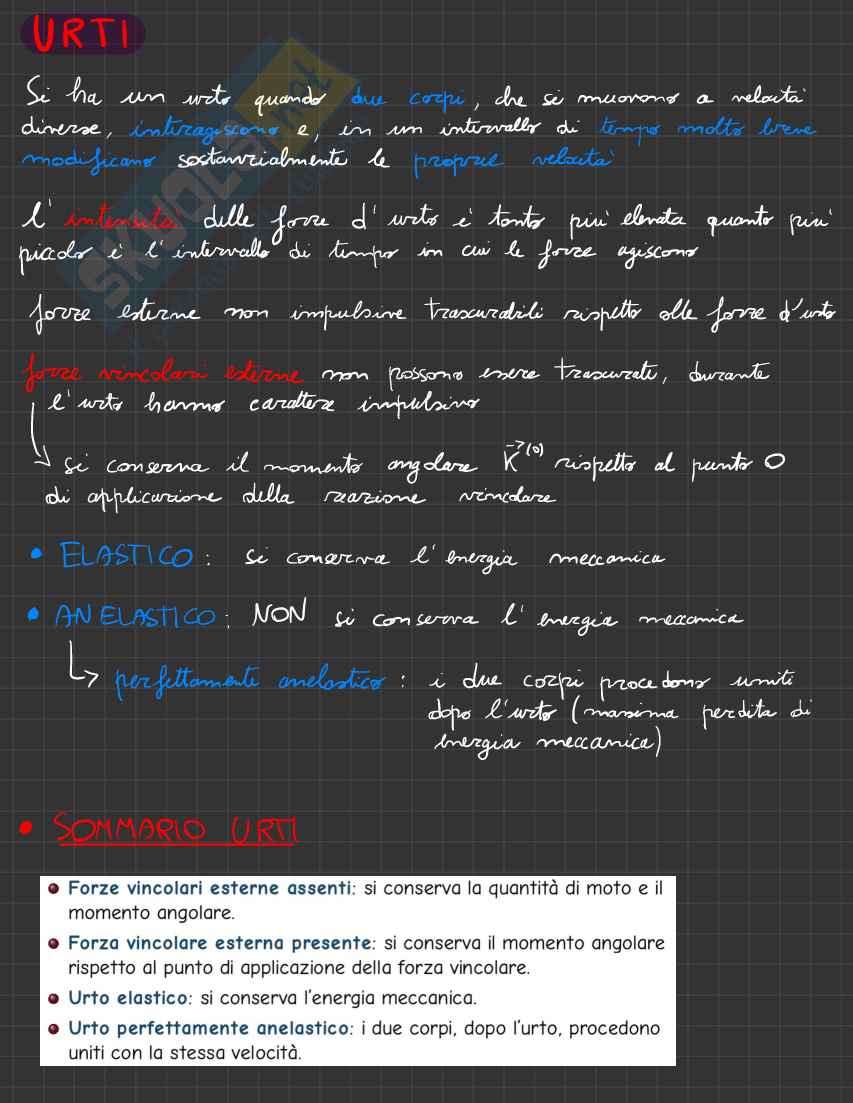 URTI
Si ha un urto quando due corpi, che si muovono a velocità
diverse, interagiscono e, in un intervallo di tempo molto breve
modificano sostanzialmente le proprie velocità
l' intensità delle forze d' urto è tanto più elevata quanto più
piccolo è l' intervallo di tempo in cui le forze agiscono
forze esterne non impulsive trascurabili rispetto alle forze d'urto
forze vincolari esterne non possono essere trascurate, durante
l' urto hanno carattere impulsivo
si conserva il momento angolare K⃗⁽⁰⁾ rispetto al punto O
di applicazione della reazione vincolare
• ELASTICO: si conserva l' energia meccanica
• ANELASTICO: NON si conserva l' energia meccanica
perfettamente anelastico: i due corpi procedono uniti
dopo l'urto (massima perdita di
energia meccanica)
• SOMMARIO URTI
Forze vincolari esterne assenti: si conserva la quantità di moto e il
momento angolare.
Forza vincolare esterna presente: si conserva il momento angolare
rispetto al punto di applicazione della forza vincolare.
Urto elastico: si conserva l'energia meccanica.
Urto perfettamente anelastico: i due corpi, dopo l'urto, procedono
uniti con la stessa velocità.